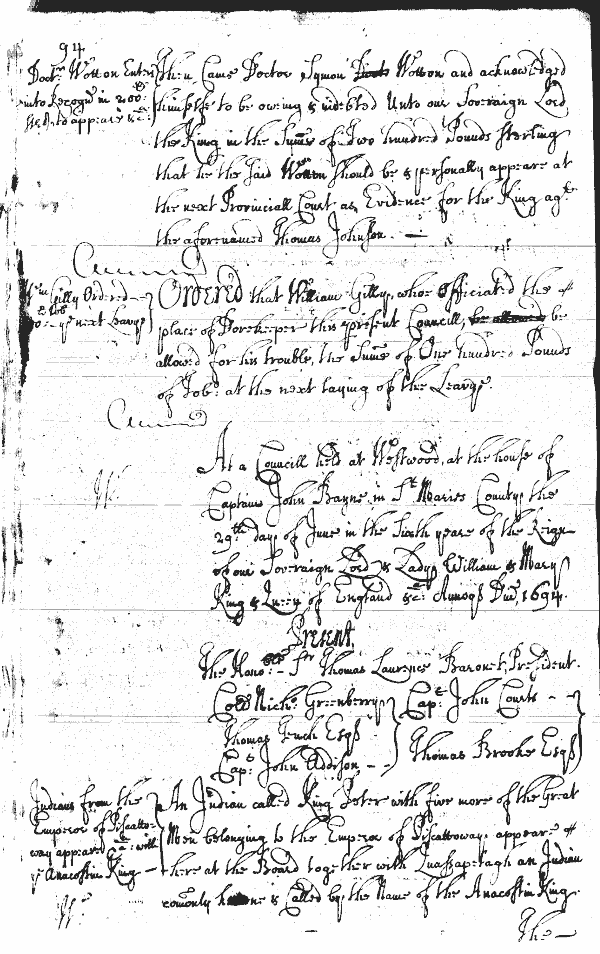 94
Doctr. Wotton Enters
into Recogn. in 200:
to appeare &c:
Then Came Doctor Symon Wotton and acknowledged
himselfe to be oweing & indebted Unto our Soveraign Lord
the King in the Sume of Two hundred Pounds Sterling
that he the said Wotton should be & personally appeare at
the next Provinciall Court as Evidence for the King agt.
the aforenamed Thomas Johnson. —
Wm. Gilly Ordered
next Leavy
ORDERED that William Gilly, whoe Officiated the
place of Dorekeeper this present Councill, be allowed be
allowed for his trouble, the Sume of One hundred Pounds
of Tob: at the next laying of the Leavy.
At a Councill held at Westwood, at the house of
Captaine John Bayne in St. Maries County, the
29th day of June in the Sixth yeare of the Reign
of our Soveraign Lord & Lady William & Mary
King & Queen of England &c: Annoq Dm, 1694.
Present,
The Honoble Sr Thomas Laurence Baronet, President.
Coll Nicho: Greenberry
Thomas Tench Esqs
Capt: John Addison - -
Capt: John Courts - -
Thomas Brooke Esqs
Indians from the
Emperor of Piscatto-
way appeared &c: with
ye Anacostin King
An Indian called King Peter with five more of the Great
Men belonging to the Emperor of Piscattoway, appeare
here at the Board together with Quassapetagh an Indian
comonly & Called by the Name of the Anacostin King.
The —